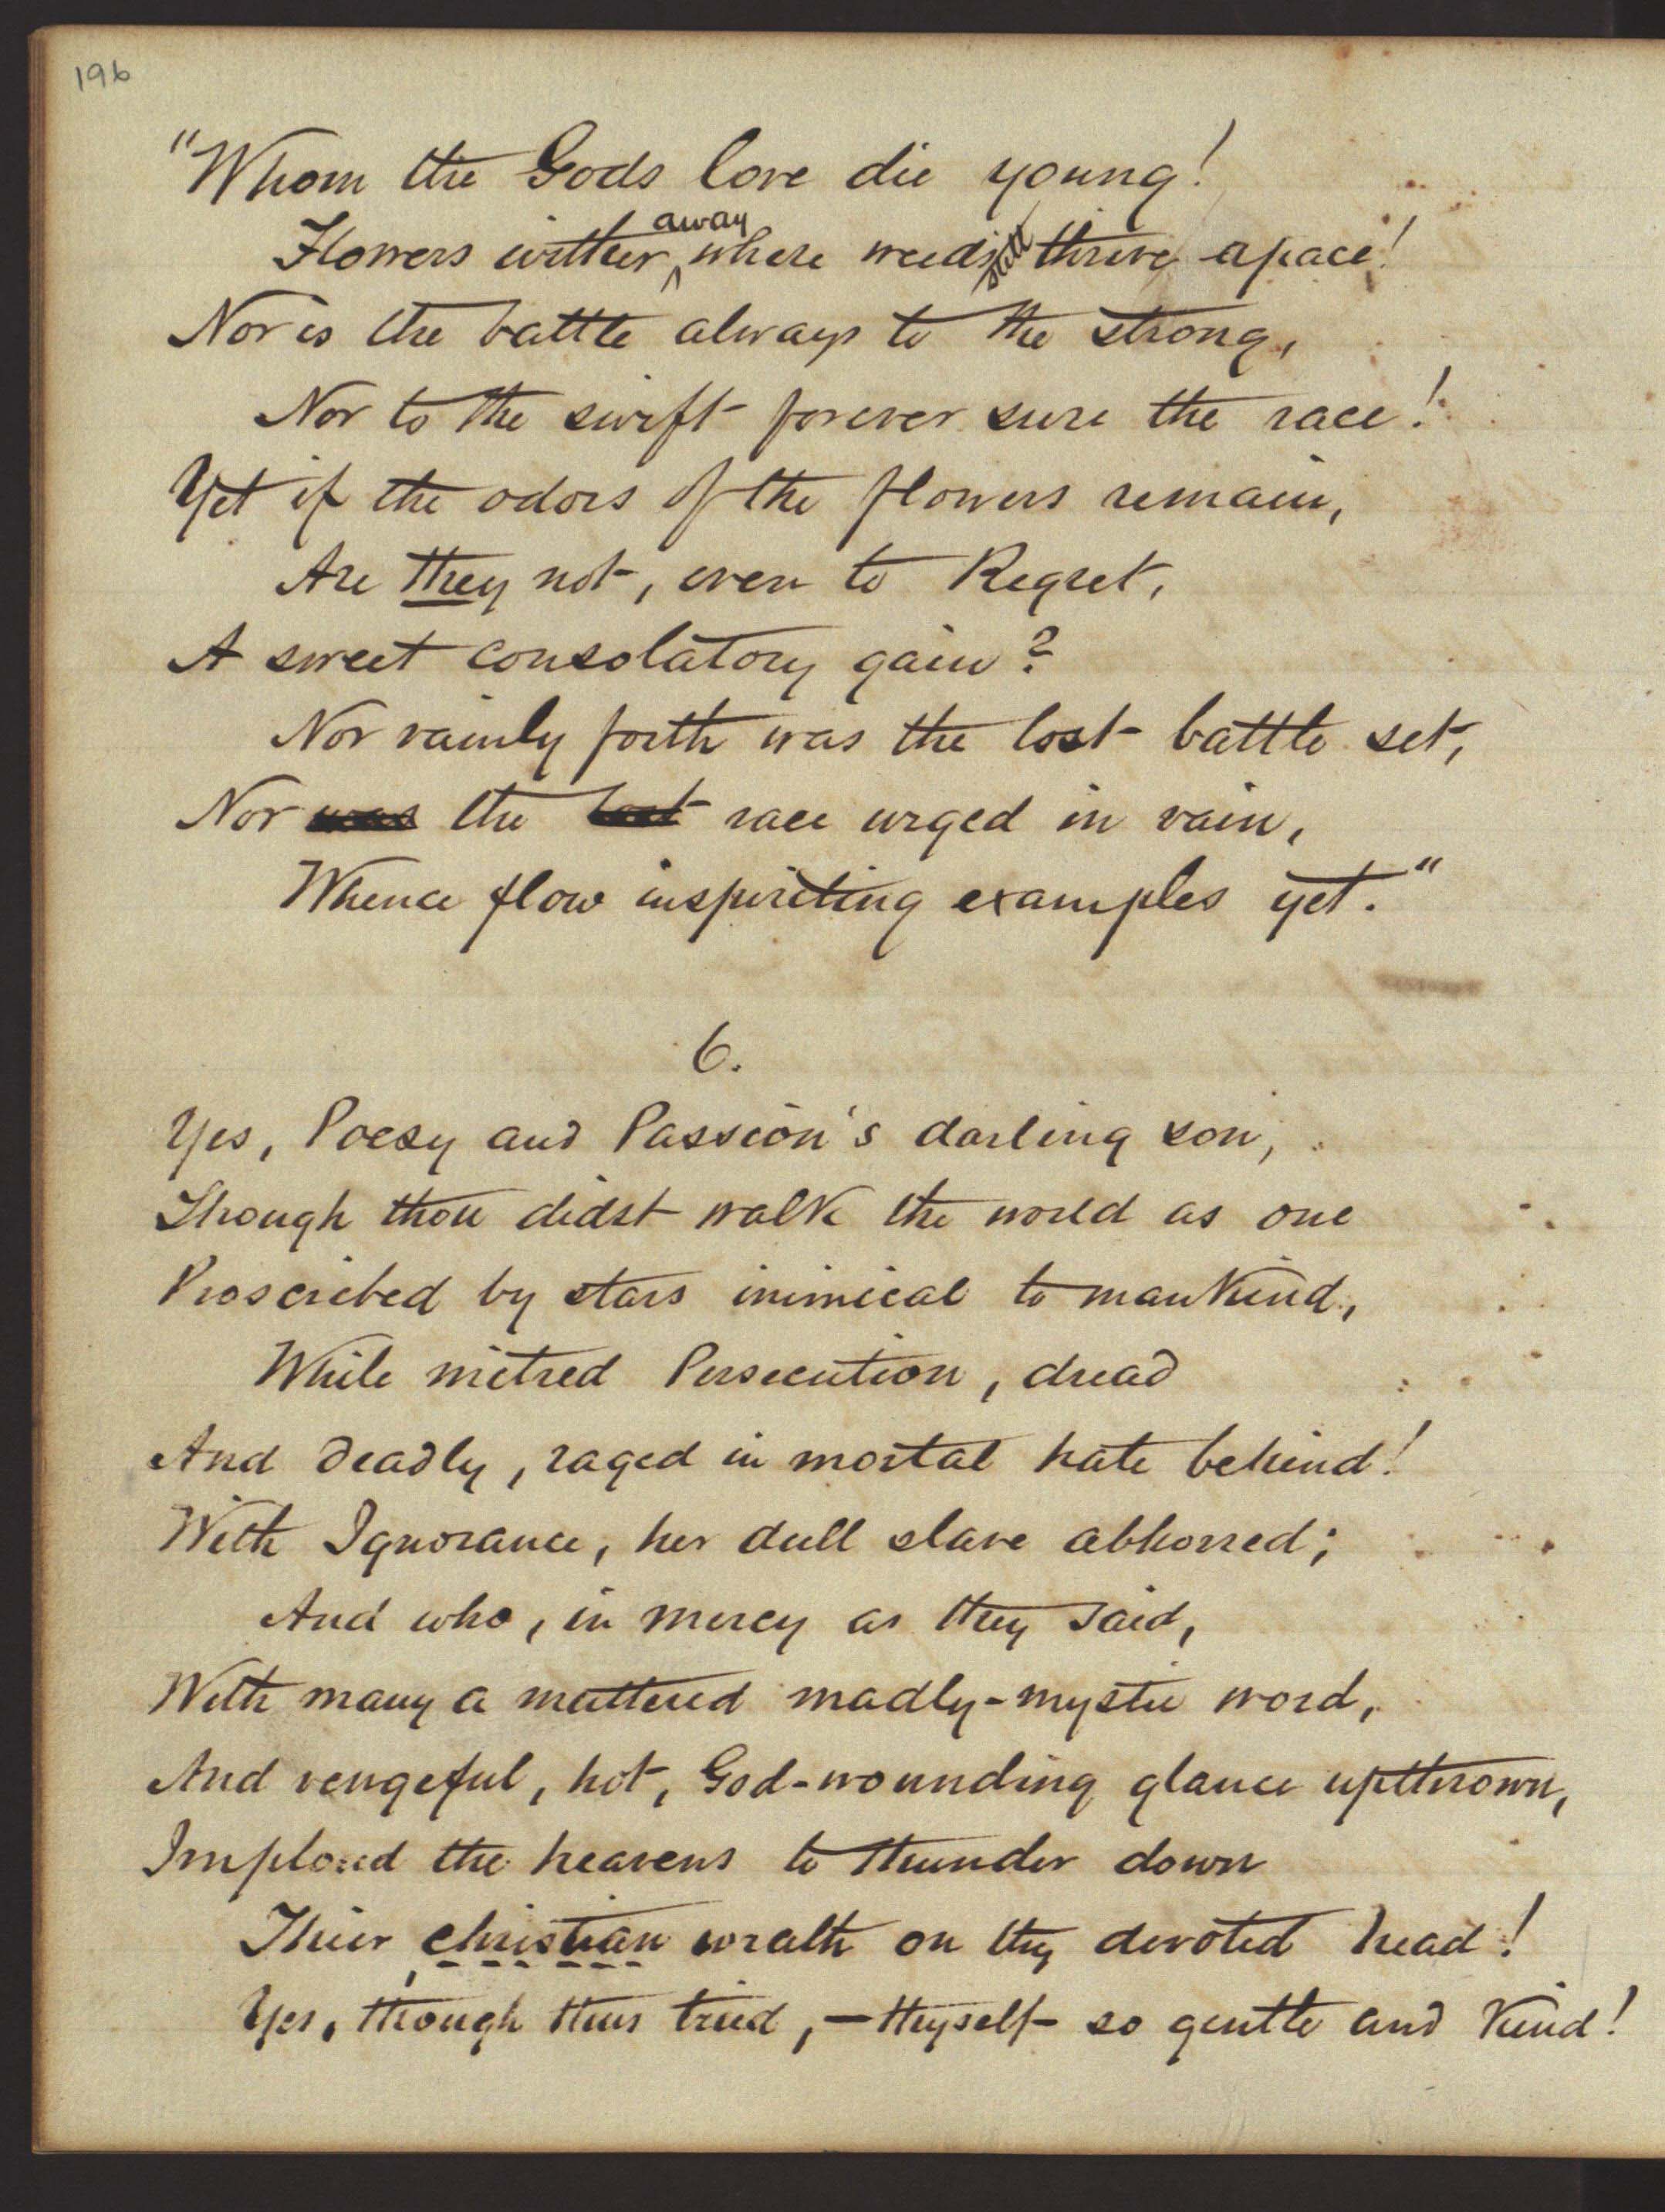 196
"Whom the Gods love die young!
Flowers wither away where weeds still thrive apace!
Nor is the battle always to the strong,
Nor to the swift forever sure the race!
Yet if the odors of the flowers remain,
Are they not, even to Regret,
A sweet consolatory gain?
Nor vainly forth was the lost battle set,
Nor was the lost race urged in vain,
Whence flow inspiriting examples yet."
6.
Yes, Poesy and Passion's darling son,
Though thou didst walk the world as one
Proscribed by stars inimical to mankind,
While mitred Persecution, dread
And deadly, raged in mortal hate behind!
With Ignorance, her dull slave abhorred;
And who, in mercy as they said,
With many a muttered madly-mystic word,
And vengeful, hot, God-wounding glance upthrown,
Implored the heavens to thunder down
Thier christian wrath on thy devoted head!
Yes, though thus tried,—thyself so gentle and kind!